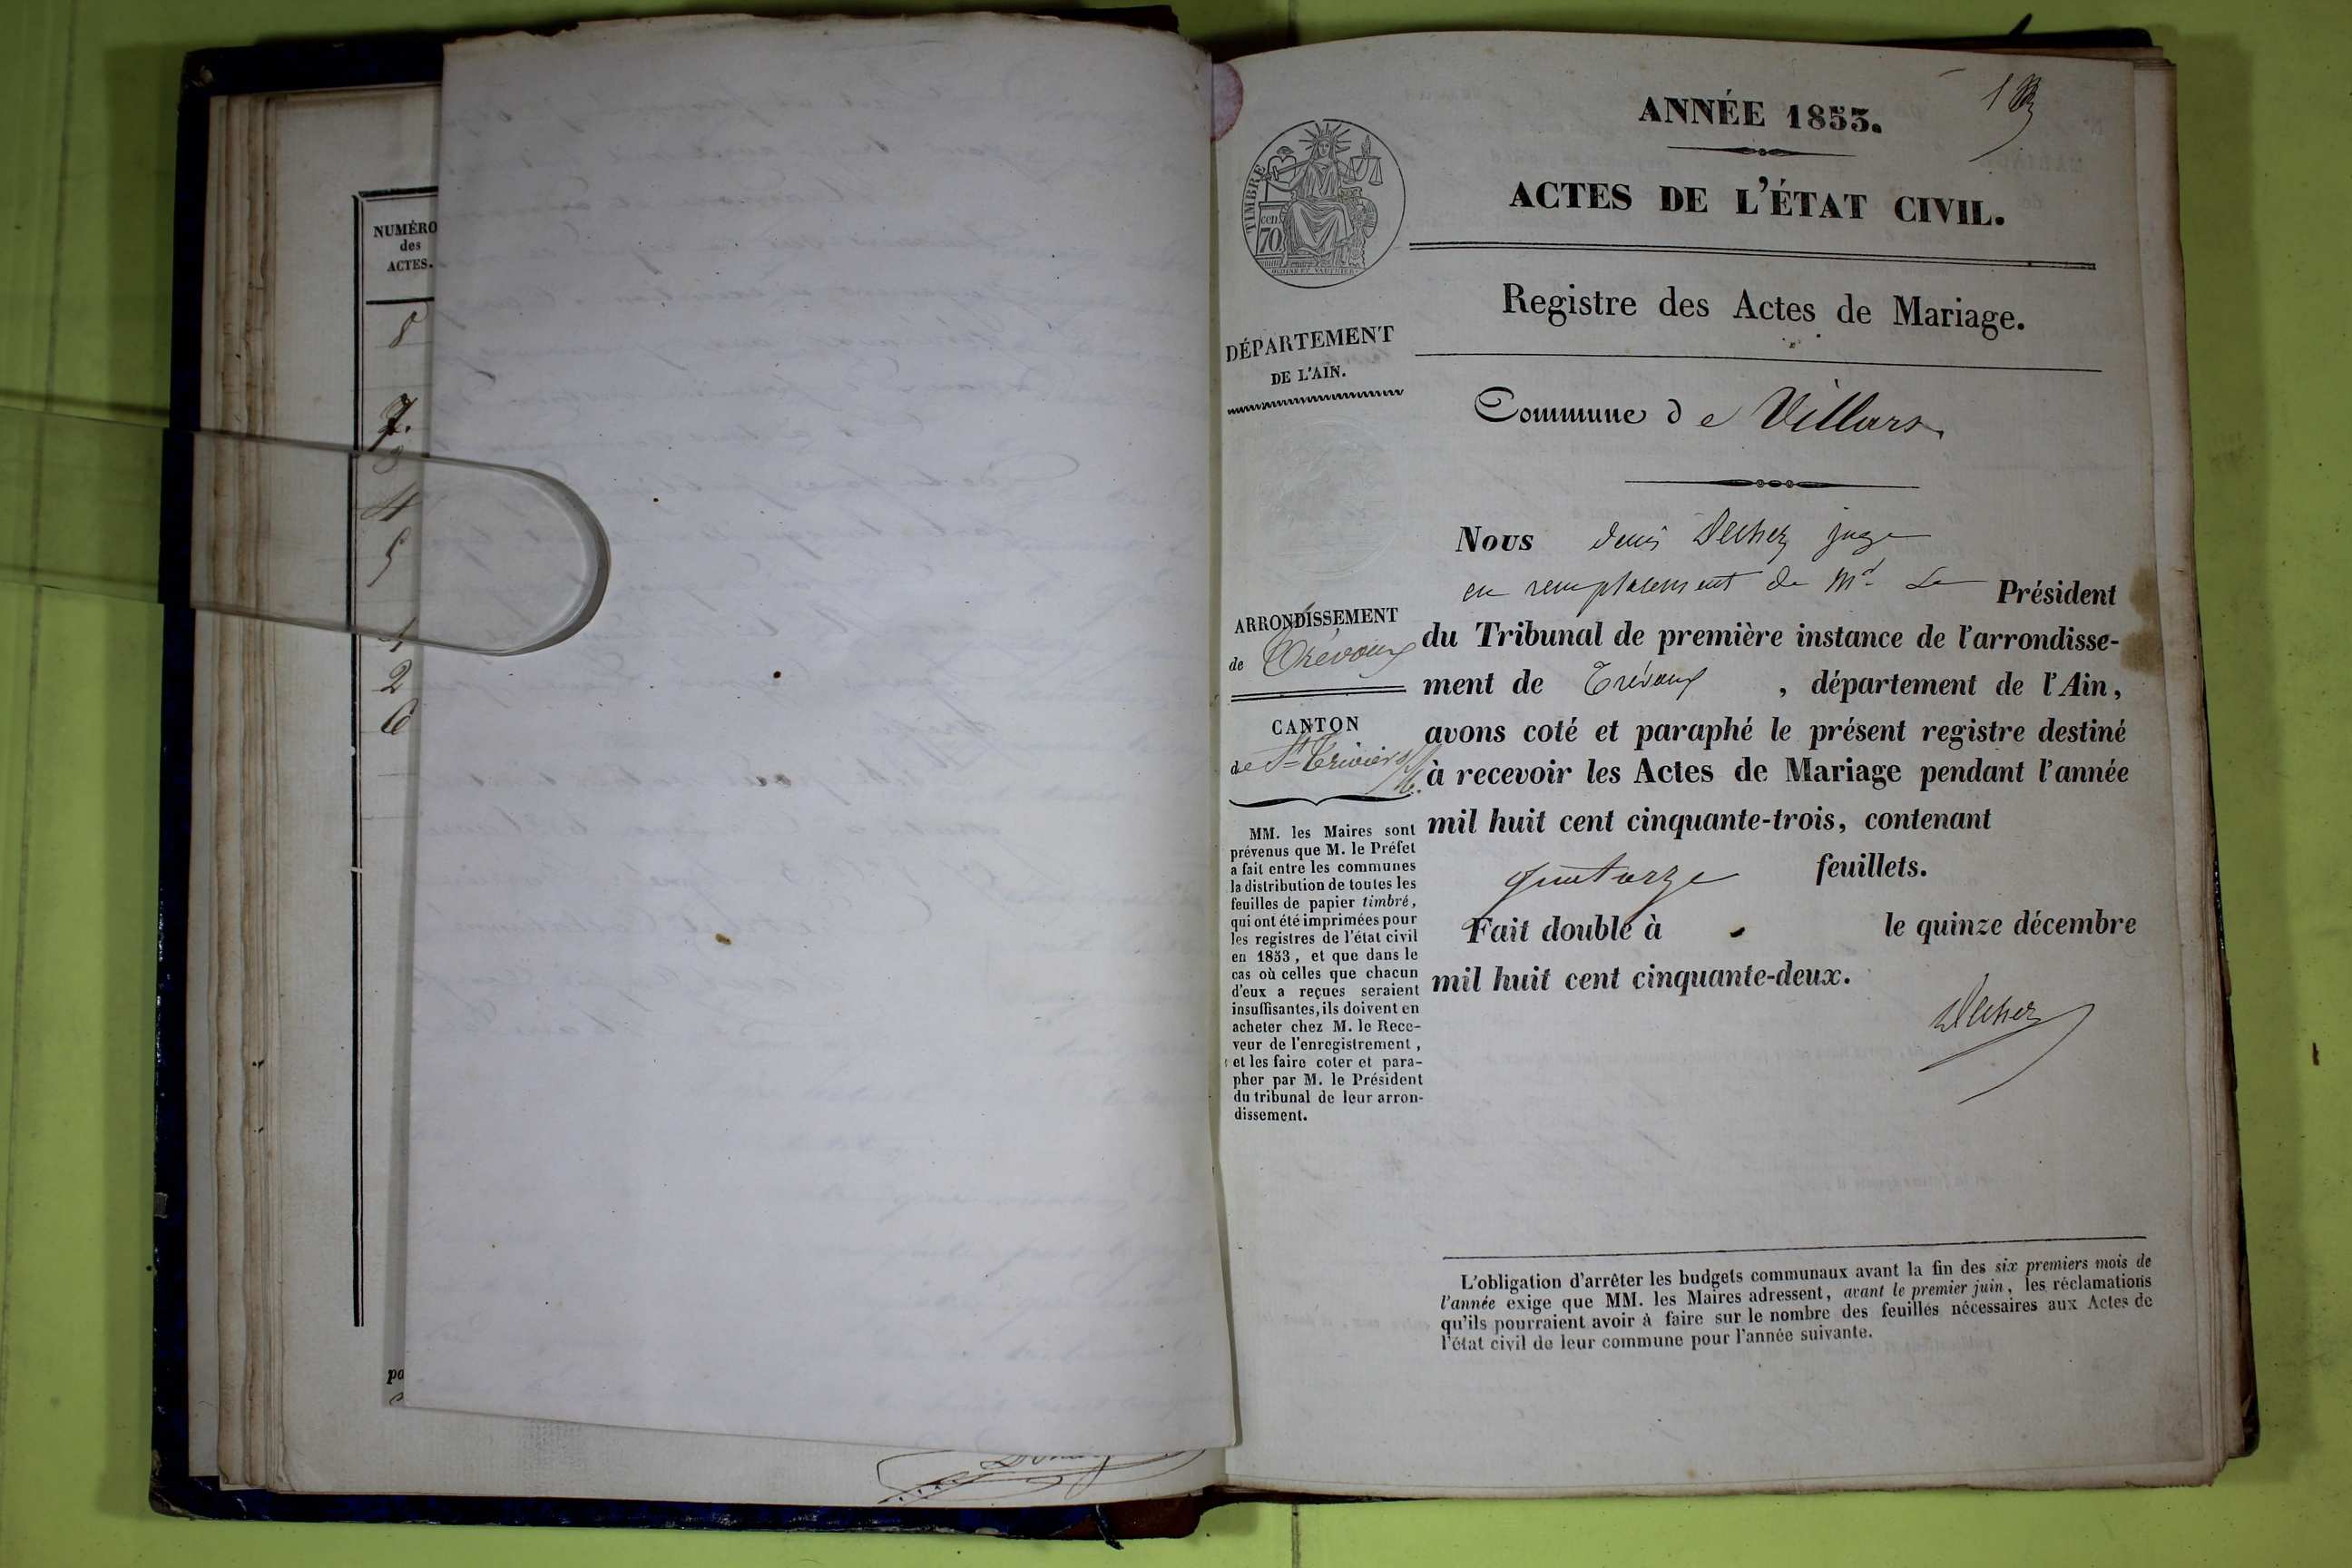 NUMÉRO
des
ACTES.
8
7.
3
4
5
1
2
6
pa
ANNÉE 1853.
1
ACTES DE L'ÉTAT CIVIL.
TIMBRE
cen
70
Registre des Actes de Mariage.
DÉPARTEMENT
DE L'AIN.
Commune de Villars
Nous Denis juge
en remplacement de Mr Le Président
du Tribunal de première instance de l'arrondisse-
ment de Trévoux , département de l'Ain,
avons coté et paraphé le présent registre destiné
à recevoir les Actes de Mariage pendant l'année
mil huit cent cinquante-trois, contenant
quatorze feuillets.
Fait double à le quinze décembre
mil huit cent cinquante-deux.
ARRONDISSEMENT
de Trévoux
CANTON
de St Trivier
MM. les Maires sont
prévenus que M. le Préfet
a fait entre les communes
la distribution de toutes les
feuilles de papier timbré,
qui ont été imprimées pour
les registres de l'état civil
en 1853, et que dans le
cas où celles que chacun
d'eux a reçues seraient
insuffisantes, ils doivent en
acheter chez M. le Rece-
veur de l'enregistrement,
et les faire coter et para-
pher par M. le Président
du tribunal de leur arron-
dissement.
L'obligation d'arrêter les budgets communaux avant la fin des six premiers mois de
l'année exige que MM. les Maires adressent, avant le premier juin, les réclamations
qu'ils pourraient avoir à faire sur le nombre des feuilles nécessaires aux Actes de
l'état civil de leur commune pour l'année suivante.